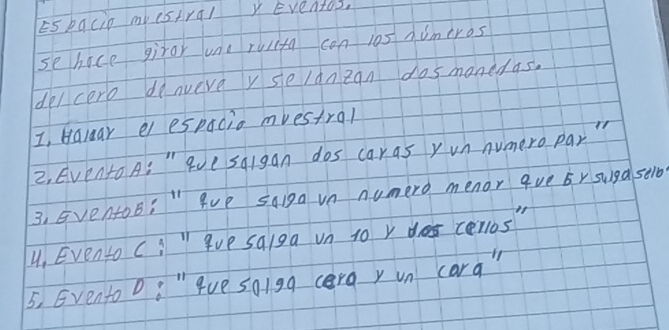 Espacio muestral y Eventos.
se hace girar una ruleta con los números
del cero de nueve y se lanzan dos monedas.
1. Hallar el espacio muestral
2. Evento A: "que salgan dos caras y un numero par"
3. Evento B: "que salga un numero menor que 5 y salga selo
4. Evento C: "que salga un 10 y cellos"
5. Evento D: "que salga cero y un cara"